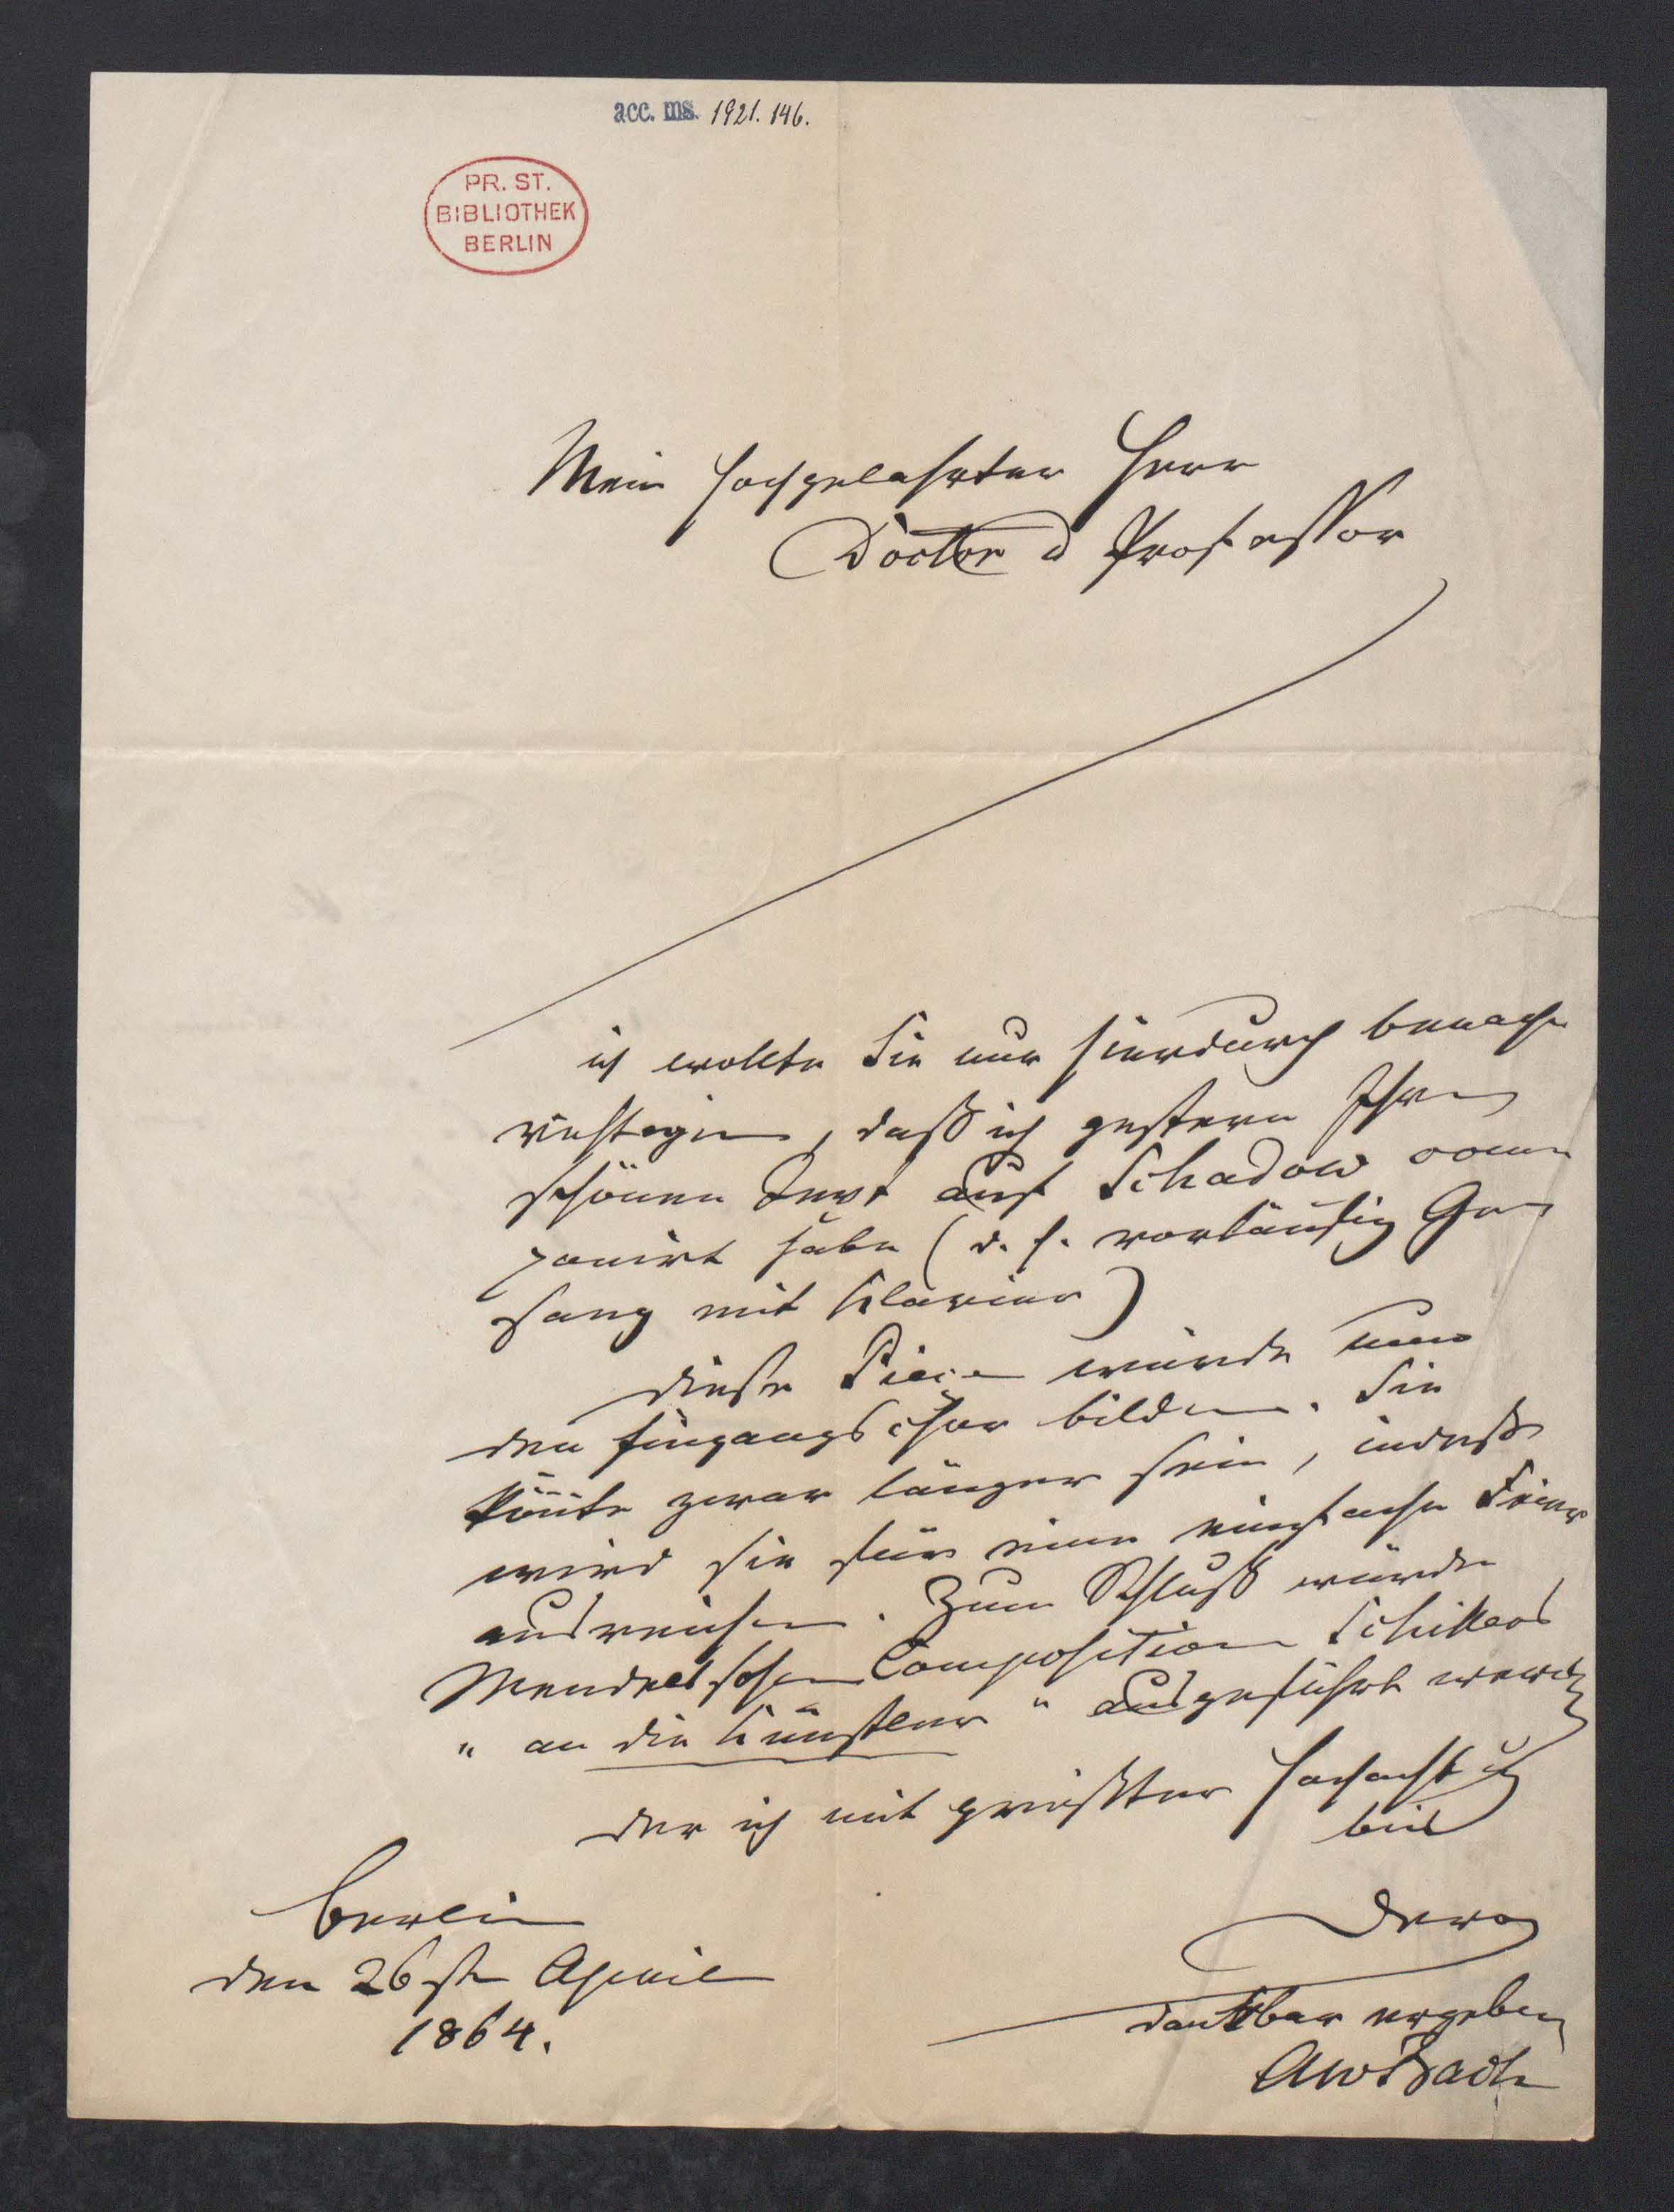 acc. ms. 1921. 146.
PR. ST.
BIBLIOTHEK
BERLIN
Mein hochgelahrter Herr
Doctor u Professor
ich wollte Sie nur hierdurch benach
richtigen, daß ich gestern Ihren
schönen Text auf Schadow com
ponirt habe (d. h. vorläufig Ge
sang mit Klavier)
diese Piece würde nun
den Eingangschor bilden. Sie
könte zwar länger sein, indeß
wird sie für eine einfache Feier
ausreichen. Zum Schluß würde
Mendelssohn Composition Schillers
"an die Künstler" ausgeführt werden
der ich mit größter Hochacht
bin
Berlin
den 26st April
1864.
Dero
dankbar ergeben
AWBach